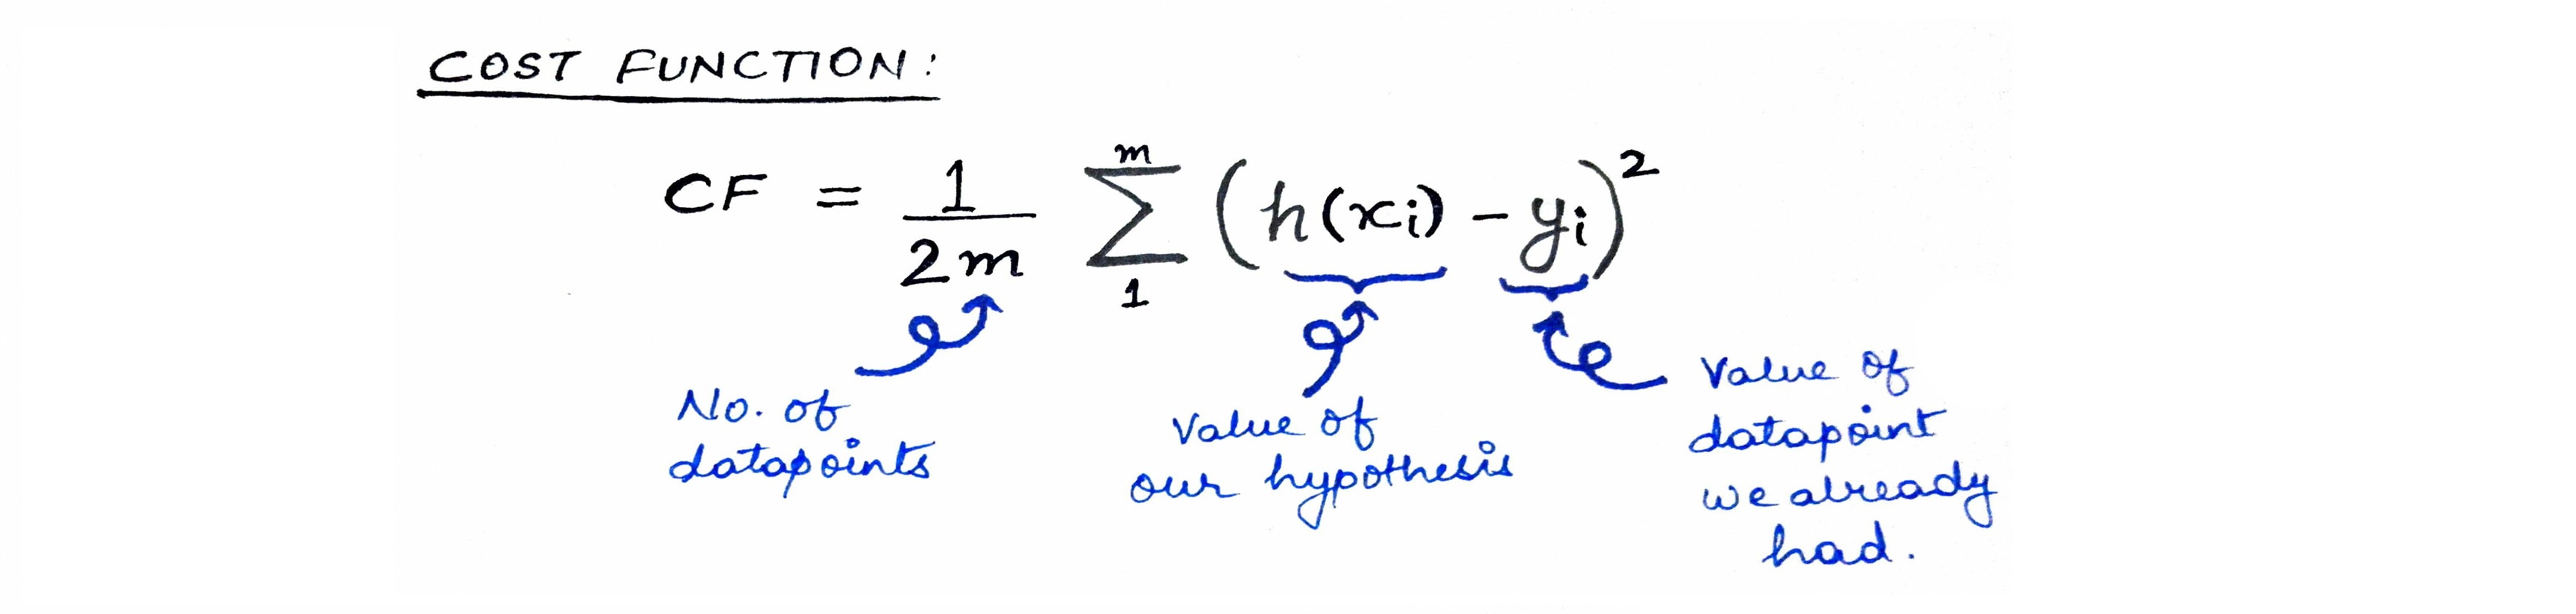 COST FUNCTION:
CF = 1/2m m∑1 (h(xi) - yi)²
No. of
datapoints
Value of
our hypothesis
Value of
datapoint
we already
had.